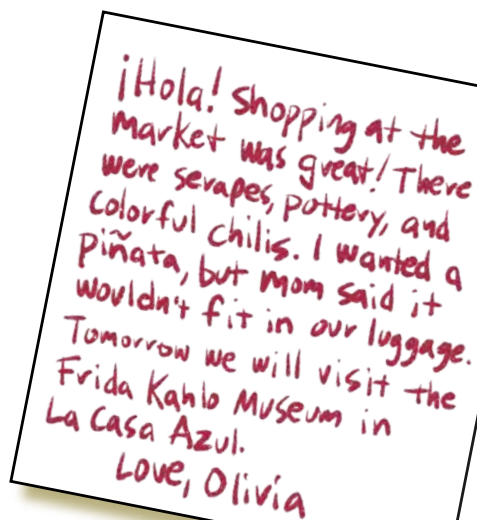 ¡Hola! Shopping at the
market was great! There
were serapes, pottery, and
colorful chilis. I wanted a
piñata, but mom said it
wouldn't fit in our luggage.
Tomorrow we will visit the
Frida Kahlo Museum in
La Casa Azul.
Love, Olivia